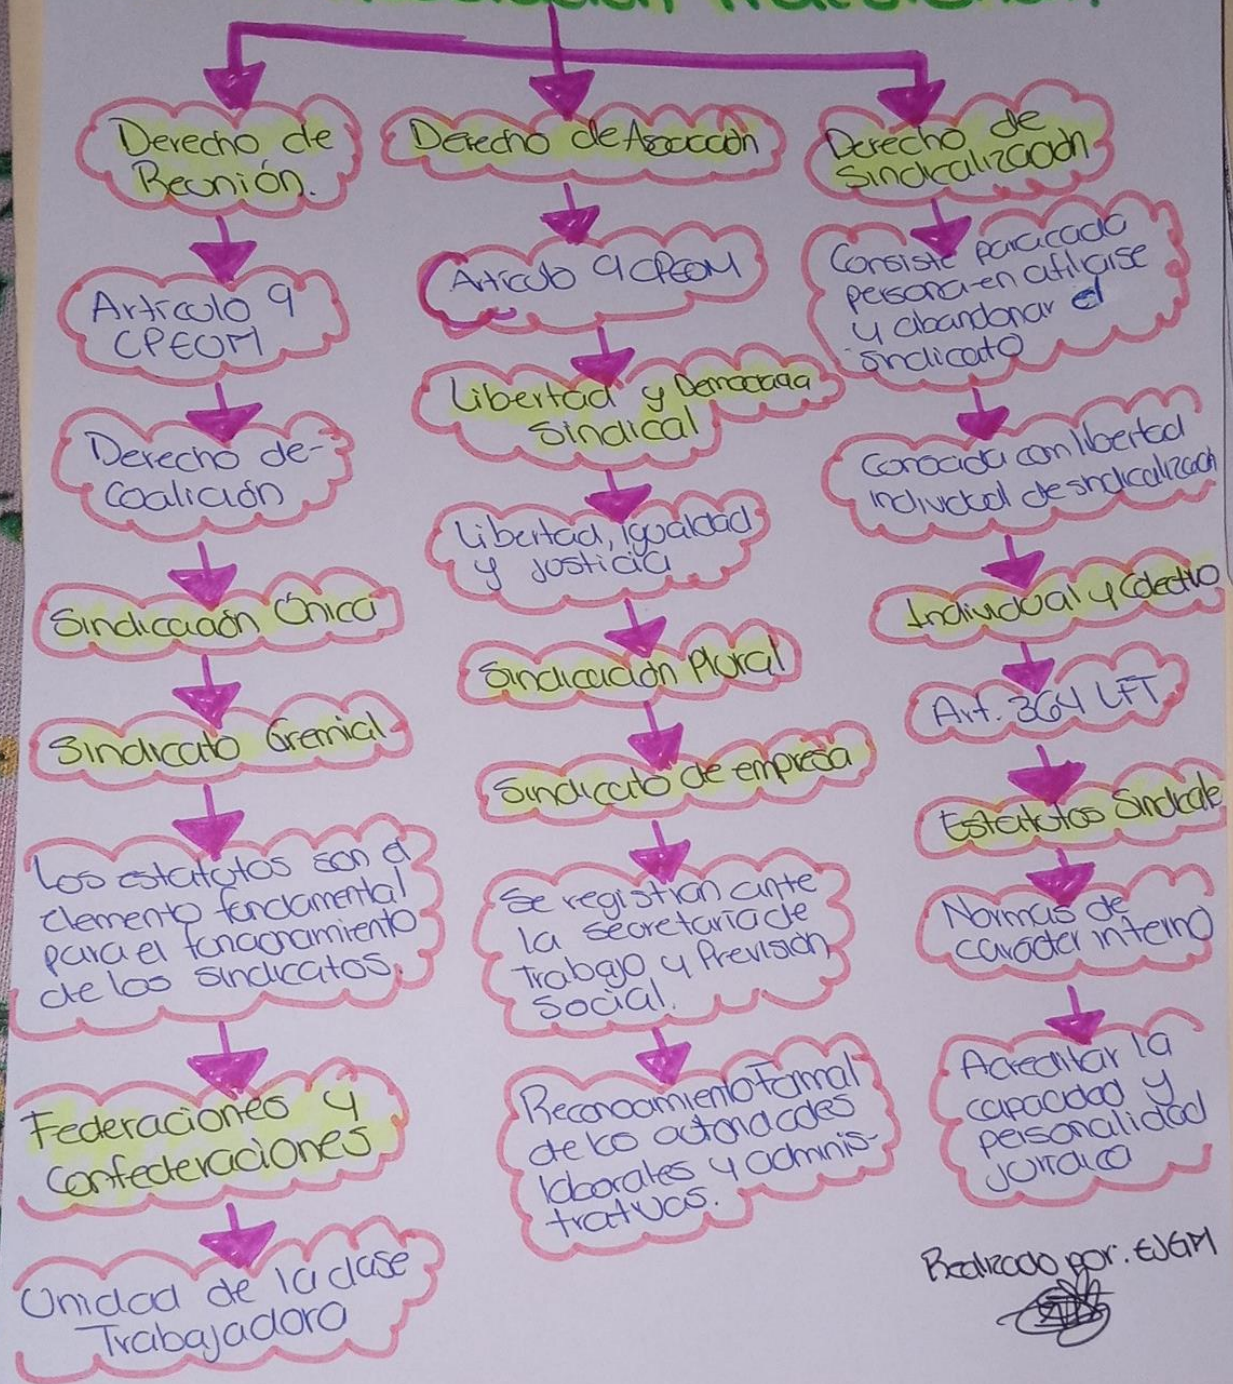 Derecho de
Reunión.
Artículo 9
CPEUM
Derecho de-
Coalición
Sindicación Única
Sindicato Gremial
Los estatutos son el
elemento fundamental
para el funcionamiento
de los sindicatos.
Federaciones y
Confederaciones
Unidad de la clase
Trabajadora
Derecho de Asociación
Artículo 9 CPEUM
Libertad y Democracia
Sindical
Libertad, Igualdad
y Justicia
Sindicación Plural
Sindicato de empresa
Se registran ante
la Secretaría de
Trabajo y Previsión
Social.
Reconocimiento Formal
de las autoridades
laborales y adminis-
trativas.
Derecho de
Sindicalización
Consiste para cada
persona en afiliarse
y abandonar el
sindicato
Conocida con libertad
individual de sindicalización
Individual y Colectivo
Art. 364 LFT
Estatutos Sindicale
Normas de
carácter interno
Acreditar la
capacidad y
personalidad
jurídica
Realizado por: EJGM